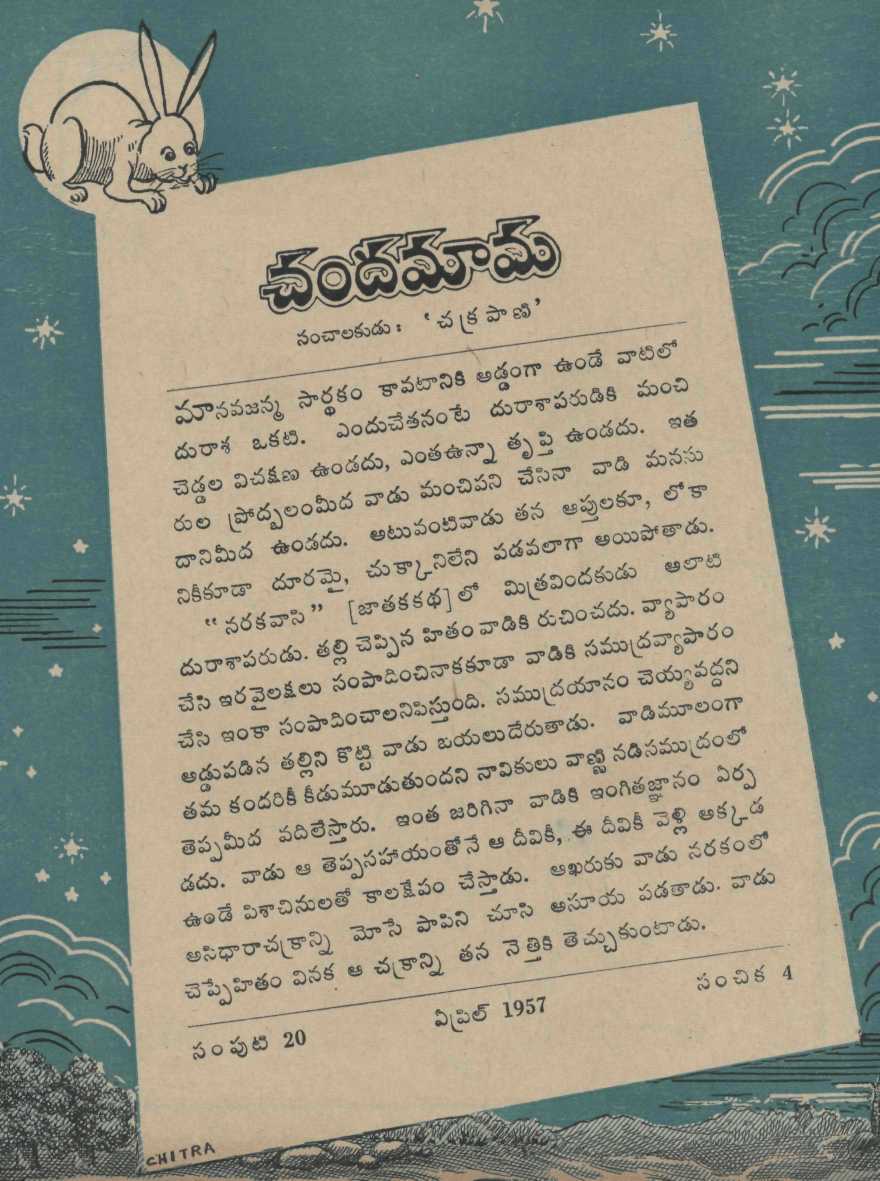 చందమామ
సంచాలకుడు : ‘చక్రపాణి’
మానవజన్మ సార్థకం కావటానికి అడ్డంగా ఉండే వాటిలో
దురాశ ఒకటి. ఎందుచేతనంటే దురాశాపరుడికి మంచి
చెడ్డల విచక్షణ ఉండదు, ఎంతఉన్నా తృప్తి ఉండదు. ఇత
రుల ప్రోద్బలంమీద వాడు మంచిపని చేసినా వాడి మనసు
దానిమీద ఉండదు. అటువంటివాడు తన ఆప్తులకూ, లోకా
నికీకూడా దూరమై, చుక్కానిలేని పడవలాగా అయిపోతాడు.
“నరకవాసి” [జాతకకథ] లో మిత్రవిందకుడు అలాటి
దురాశాపరుడు. తల్లి చెప్పిన హితం వాడికి రుచించదు. వ్యాపారం
చేసి ఇరవైలక్షలు సంపాదించినాకకూడా వాడికి సముద్రవ్యాపారం
చేసి ఇంకా సంపాదించాలనిపిస్తుంది. సముద్రయానం చెయ్యవద్దని
అడ్డుపడిన తల్లిని కొట్టి వాడు బయలుదేరుతాడు. వాడిమూలంగా
తమ కందరికీ కీడుమూడుతుందని నావికులు వాణ్ణి నడిసముద్రంలో
తెప్పమీద వదిలేస్తారు. ఇంత జరిగినా వాడికి ఇంగితజ్ఞానం ఏర్ప
డదు. వాడు ఆ తెప్పసహాయంతోనే ఆ దీవికీ, ఈ దీవికీ వెళ్లి అక్కడ
ఉండే పిశాచినులతో కాలక్షేపం చేస్తాడు. ఆఖరుకు వాడు నరకంలో
అసిధారాచక్రాన్ని మోసే పాపిని చూసి అసూయ పడతాడు. వాడు
చెప్పేహితం వినక ఆ చక్రాన్ని తన నెత్తికి తెచ్చుకుంటాడు.
సంపుటి 20 ఏప్రిల్ 1957 సంచిక 4
CHITRA